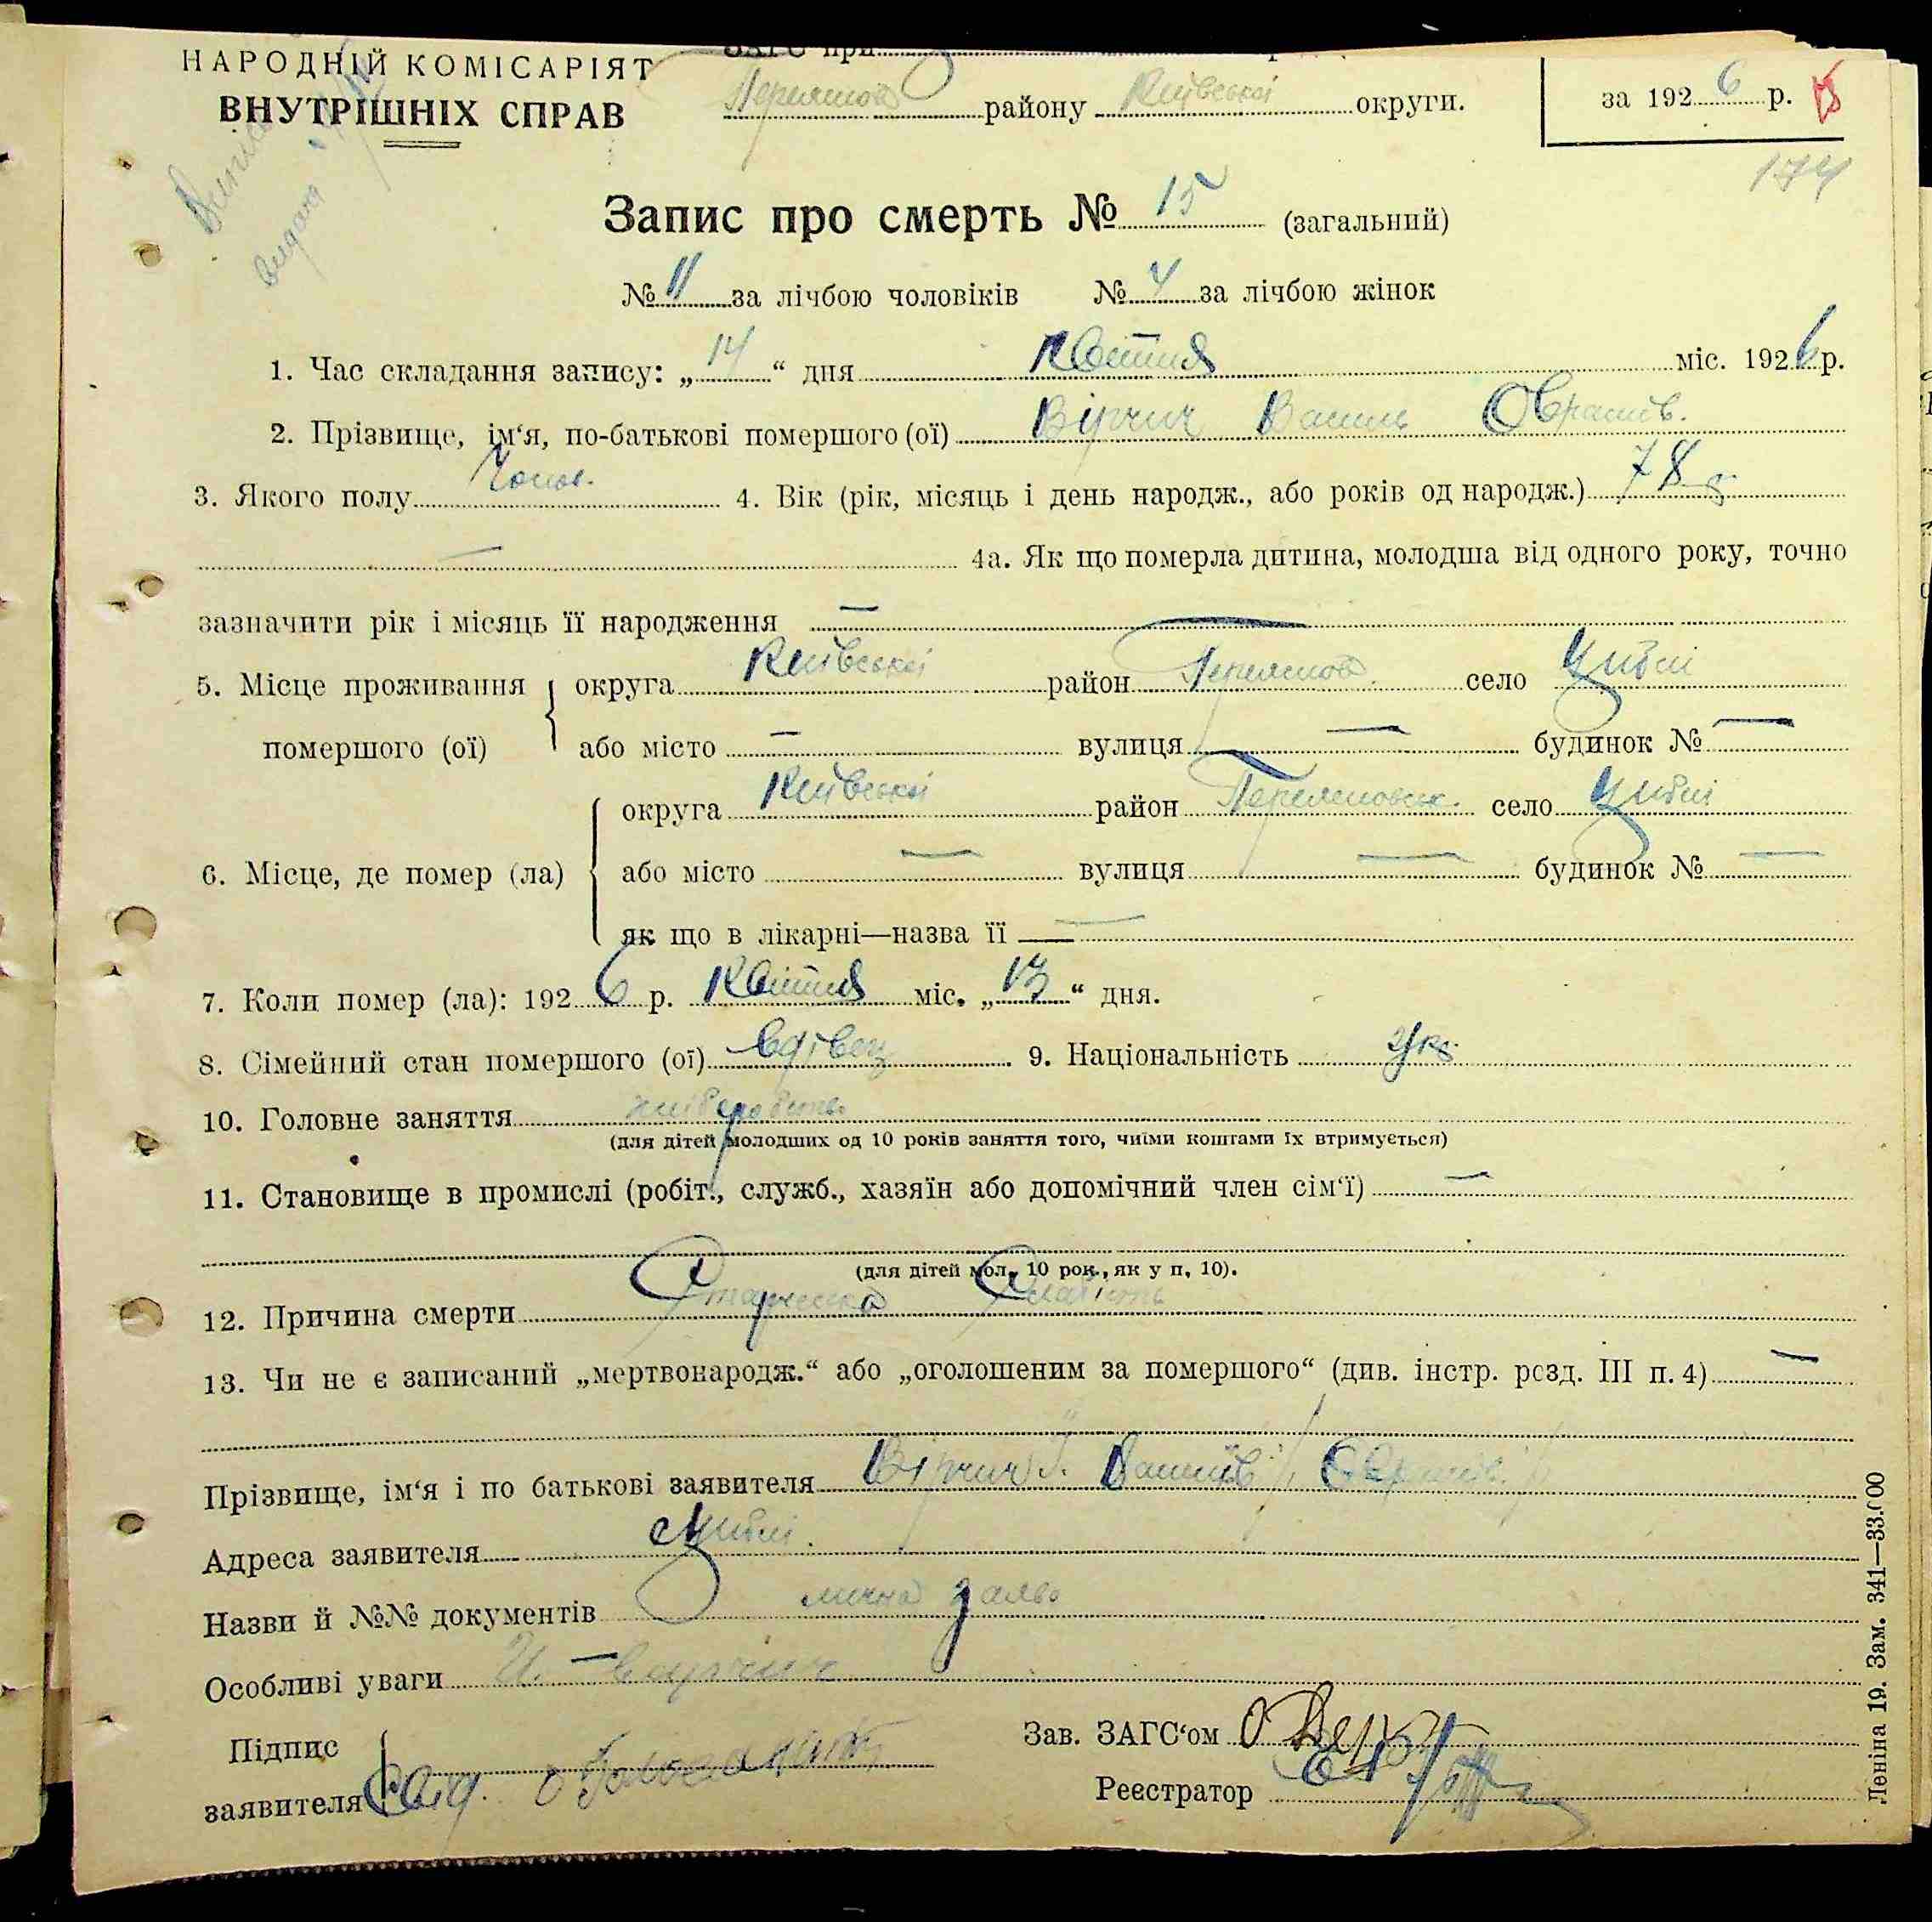 НАРОДНІЙ КОМІСАРІЯТ
ВНУТРІШНІХ СПРАВ
ЗАГС при
району Київської округи.
за 1926 р.
174
Запис про смерть № 15 (загальний)
№ 11 за лічбою чоловіків № 4 за лічбою жінок
1. Час складання запису: „14“ дня Квітня міс. 1926 р.
2. Прізвище, ім‘я, по-батькові помершого (ої) Вірчич Василь
3. Якого полу Чолов. 4. Вік (рік, місяць і день народж., або років од народж.) 78 р
— 4а. Як що померла дитина, молодша від одного року, точно
зазначити рік і місяць її народження —
5. Місце проживання помершого (ої) округа Київської район село Циблі
або місто — вулиця — будинок № —
6. Місце, де помер (ла) округа Київської район село Циблі
або місто — вулиця — будинок № —
як що в лікарні—назва її —
7. Коли помер (ла): 1926 р. Квітня міс. „13“ дня.
8. Сімейний стан помершого (ої) вдівець 9. Національність Укр.
10. Головне заняття хлібороб
(для дітей молодших од 10 років заняття того, чиїми коштами їх втримується)
11. Становище в промислі (робіт., служб., хазяїн або допомічний член сім‘ї) —
(для дітей мол. 10 рок., як у п. 10).
12. Причина смерти Старческа Слабість
13. Чи не є записаний „мертвонародж.“ або „оголошеним за помершого“ (див. інстр. розд. III п. 4) —
Прізвище, ім‘я і по батькові заявителя Вірчич
Адреса заявителя с Циблі
Назви й №№ документів лична заява
Особливі уваги —
Підпис
заявителя
Зав. ЗАГС‘ом
Реєстратор
Леніна 19. Зам. 341—33.000